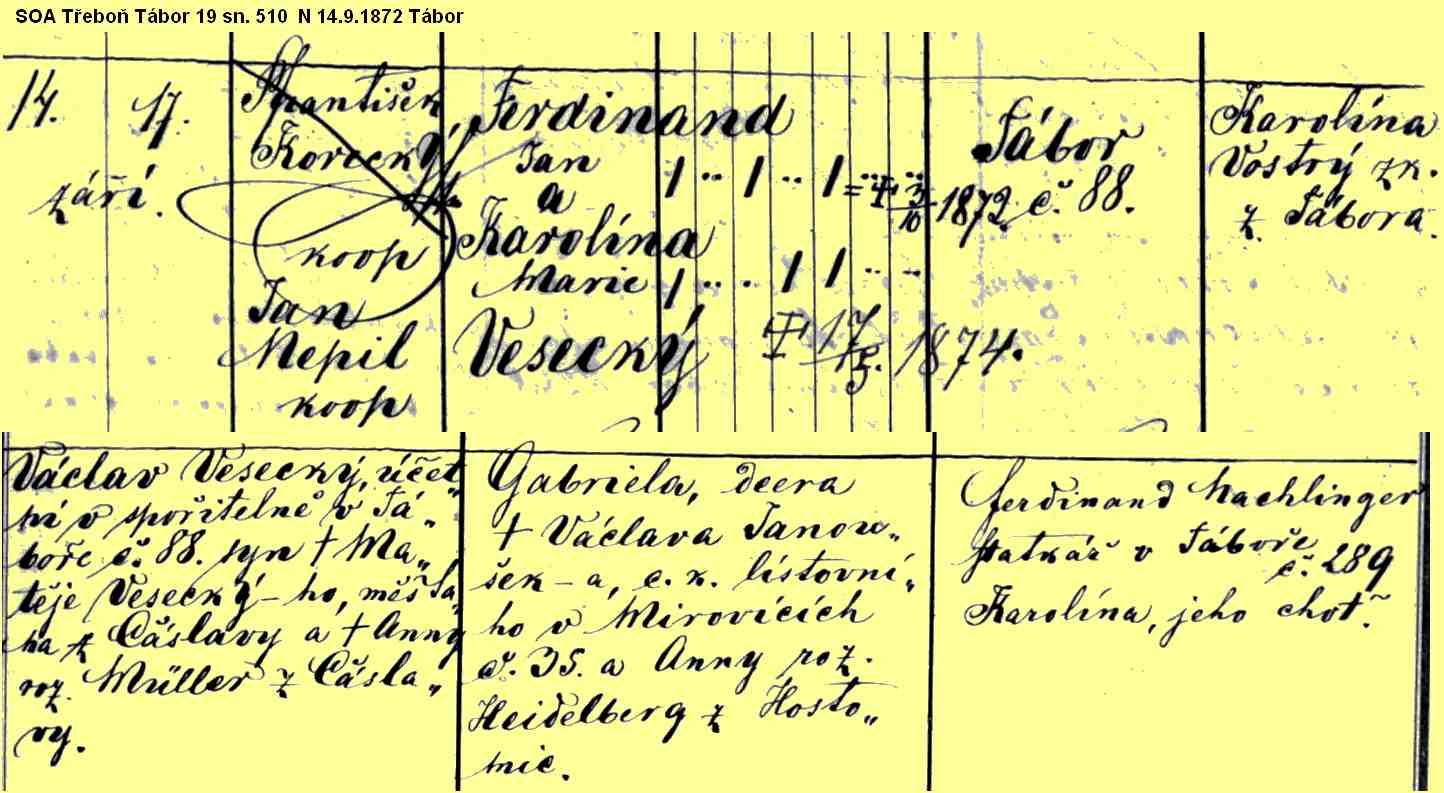 SOA Třeboň Tábor 19 sn. 510 N 14.9.1872 Tábor
14. 17.
září.
František
Korecký
koop
Jan
Nepil
koop
Ferdinand
Jan
a
Karolína
Marie
Vesecký
† 3/10 1872
† 17/5. 1874.
Tábor
č. 88.
Karolína
Vostrý zk.
z Tábora.
Václav Vesecký, účet„
ní v spořitelně v Tá„
boře č. 88. syn † Ma„
těje Vesecký-ho, měšťa„
na z Čáslavy a † Anny
roz. Müller z Čásla„
vy.
Gabriela, dcera
† Václava Janou„
šek-a, c. k. listovní„
ho v Mirovicích
č. 35. a Anny roz.
Heidelberg z Hosto„
mic.
Ferdinand Machlinger
statkář v Táboře
č. 289
Karolína, jeho choť.